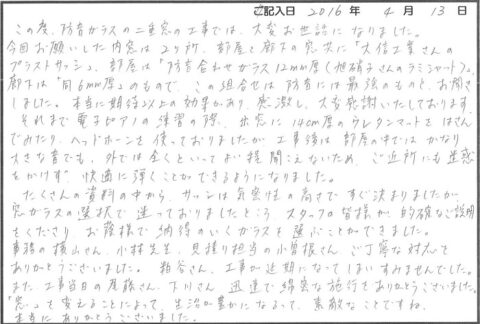 ご記入日 2016 年 4 月 13 日
この度、防音ガラスの二重窓の工事では、大変お世話になりました。
今回お願いした内窓は2ヶ所、部屋と廊下の窓共に「大信工業さんの
プラストサッシ」、部屋は「防音合わせガラス12mm厚(旭硝子さんのラミシャット)」、
廊下は「同6mm厚」のもので、この組合せは防音には最強のものと、お聞き
しました。本当に期待以上の効果があり、感激し、大変感謝いたしております。
それまで電子ピアノの練習の際、出窓に140mm厚のウレタンマットをはさん
でみたり、ヘッドホーンを使っておりましたが、工事後は部屋の中ではかなり
大きな音でも、外では全くといっておい程聞こえないため、ご近所にも迷惑
をかけず、快適に弾くことができるようになりました。
たくさんの資料の中から、サッシは気密性の高さですぐ決まりましたが、
窓ガラスの選択で迷っておりましたところ、スタッフの皆様が的確なご説明
をくださり、お陰様で納得のいくガラスを選ぶことができました。
事務の横山さん、小林先生、見積り担当の小曽根さん、ご丁寧な対応を
ありがとうございました。粕谷さん、工事が延期になってしまいすみませんでした。
また、工事当日の尾藤さん、下川さん、迅速で綿密な施行をありがとうございました。
「窓」って変えることによって、生活が豊かになるって、素敵なことですね。
本当にありがとうございました。